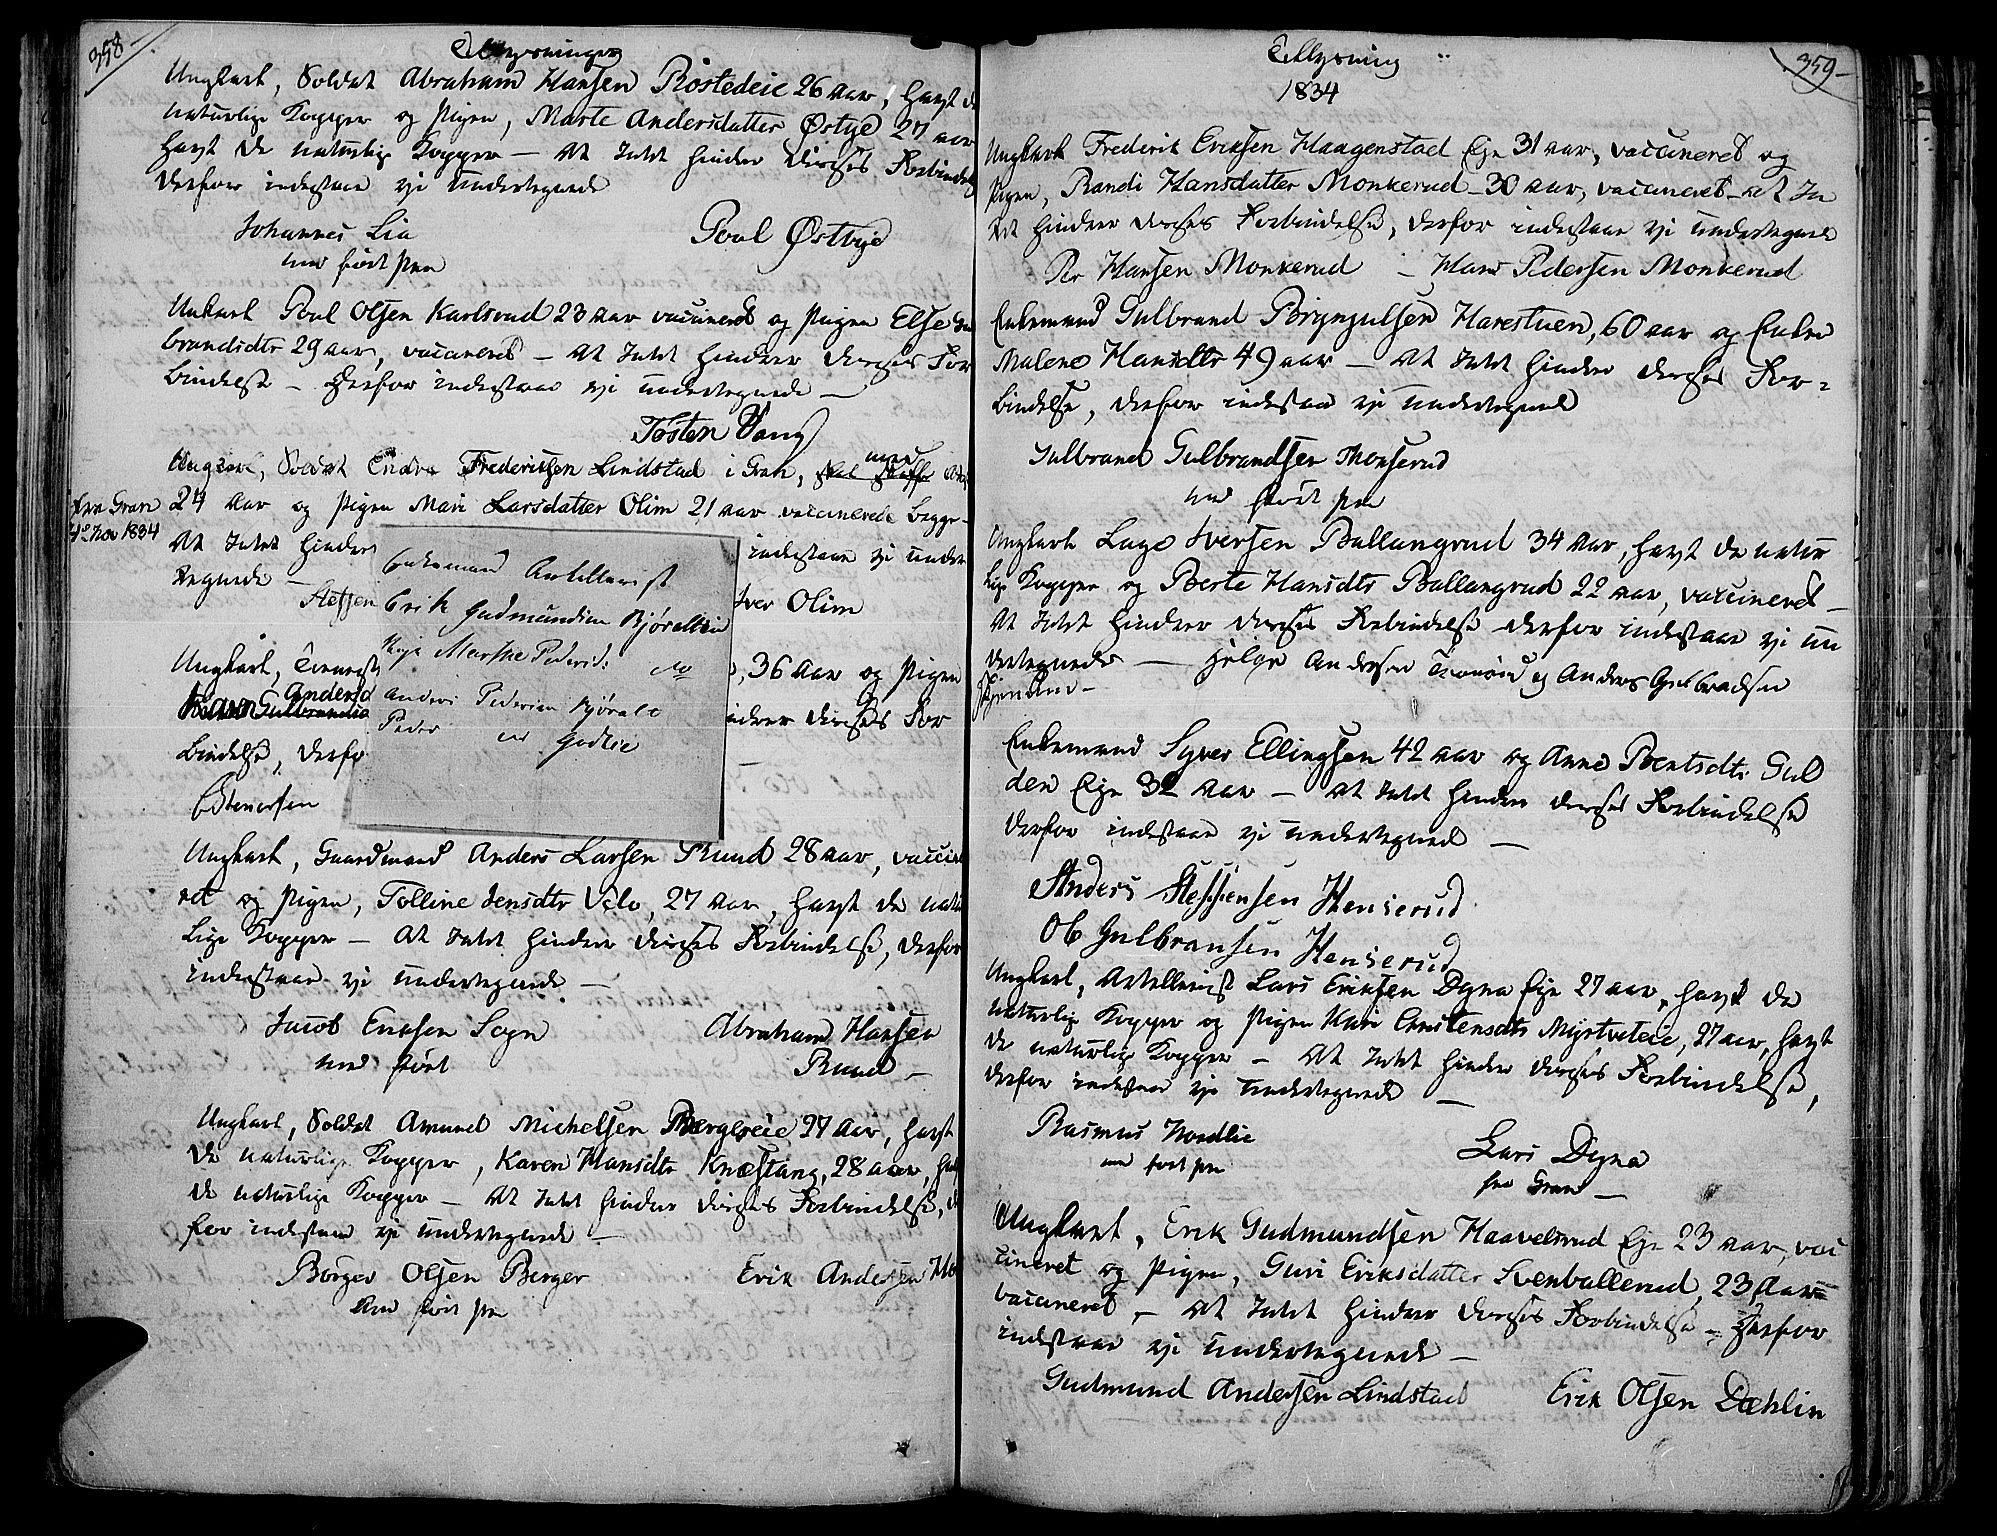 358
Tillysninger
Ungkarl, Soldat Abraham Hansen Røstedeie 26 Aar, havt de
naturlige Kopper og Pigen, Marte Andersdatter Østbye 27 Aar
havt de naturlig Kopper — At Intet hindrer deres Forbindelse
derfor indestaae vi undertegnede
Johannes Lia Poul Østbye
med ført Pen
Unkarl Poul Olsen Karlsrud 23 aar vaccineret og Pigen Else Gul
brandsdtr 29 aar, vaccineret — At Intet hindrer deres For
bindelse — Derfor indestaae vi undertegnede —
Tosten Vang
Ungkarl, Soldat Endre Frederiksen Lindstad i Gran,
fra Gran
24 Aar og Pigen Mari Larsdatter Olim 21 aar vaccinerede begge —
Nov 1834
At Intet hindrer indestaae vi under
tegnede — Steffen Iver Olim
Enkemand Artillerist
Erik Gudmundsen Bjøralteie
Pige Marthe Pedersd.
Anders Pedersen Bjøralt
Peder Godlie
Ungkarl, 36 Aar og Pigen
Andersd
Gulbrandsd hindrer deres For
bindelse, derfor
Stenersen
Ungkarl, Gaardmand Anders Larsen Ruud 28 aar, vaccine
ret og Pigen, Tolline Jensdtr Velo, 27 Aar, havt de natur
lige Kopper — At Intet hindrer deres Forbindelse, derfor
indestaae vi undertegnede —
Jacob Eriksen Sogn Abraham Hansen
med ført Ruud —
Ungkarl, Soldat Amund Michelsen Bergereie 27 Aar, havt
de naturlige Kopper, Karen Hansdtr Knæstang, 28 aar, havt
de naturlige Kopper — At Intet hindrer deres Forbindelse, der
for indestaae vi undertegnede —
Børger Olsen Berger Erik Andersen Mo
med ført Pen
Tillysning 359
1834
Ungkarl Frederik Eriksen Haagenstad Eje 31 aar, vaccineret og
Pigen, Randi Hansdatter Monkerud 30 aar, vaccineret — At In
tet hindrer deres Forbindelse, derfor indestaae vi undertegnede
Per Hansen Monkerud — Hans Pedersen Monkerud
Enkemand Gulbrand Brynjulsen Harestuen, 60 aar og Enke
Malene Hansdtr 49 aar — At Intet hindrer deres For-
bindelse, derfor indestaae vi undertegnede
Gulbrand Gulbrandsen Monserud
med ført Pen
Ungkarl Lage Iversen Ballangrud 34 Aar, havt de natur
lige Kopper og Berte Hansdtr Ballangrud 22 aar, vaccineret —
At Intet hindrer deres Forbindelse derfor indestaae vi un
dertegnede — Helge Andersen og Anders Gulbradsen
Enkemand Syver Ellingsen 42 aar og Anne Berntsdtr Gul
den Eje 32 Aar — At Intet hindrer deres Forbindelse
derfor indestaae vi undertegnede —
Anders Steffensen Henserud
Ole Gulbransen Henserud
Ungkarl, Artellerist Lars Eriksen Dyna Eje 27 aar, havt de
naturlige Kopper og Pigen Kari Christensdtr Myrtveteie, 27 aar, havt
de naturlige Kopper — At Intet hindrer deres Forbindelse,
derfor indestaae vi undertegnede —
Rasmus Nordlie Lars Dyna
med ført Pen fra Gran —
Ungkarl, Erik Gudmundsen Haavelsrud Eje 23 aar, vac
cineret og Pigen, Guri Eriksdatter Svenballerud, 23 Aar
vaccineret, — At Intet hindrer deres Forbindelse — Derfor
indestaae vi undertegnede —
Gudmund Andersen Lindstad Erik Olsen Dæhlin